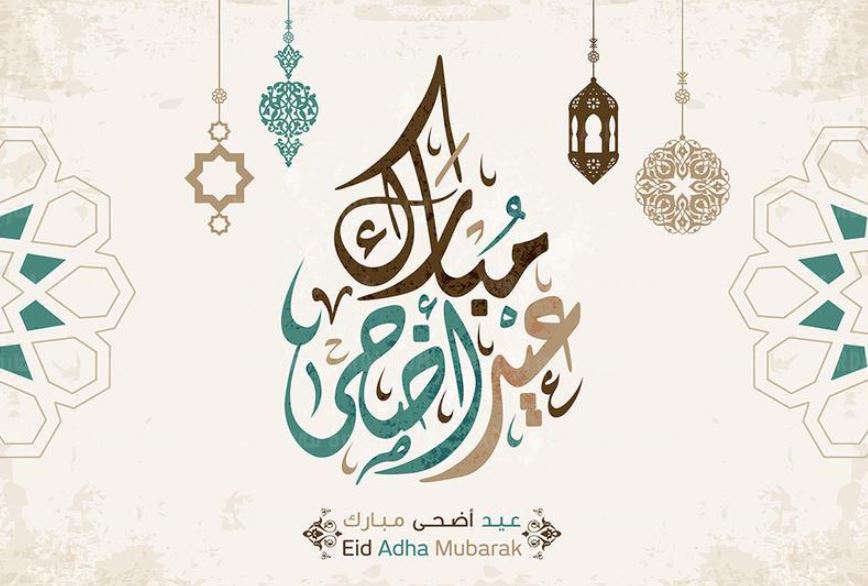 عيد أضحى مبارك
عيد أضحى مبارك
Eid Adha Mubarak